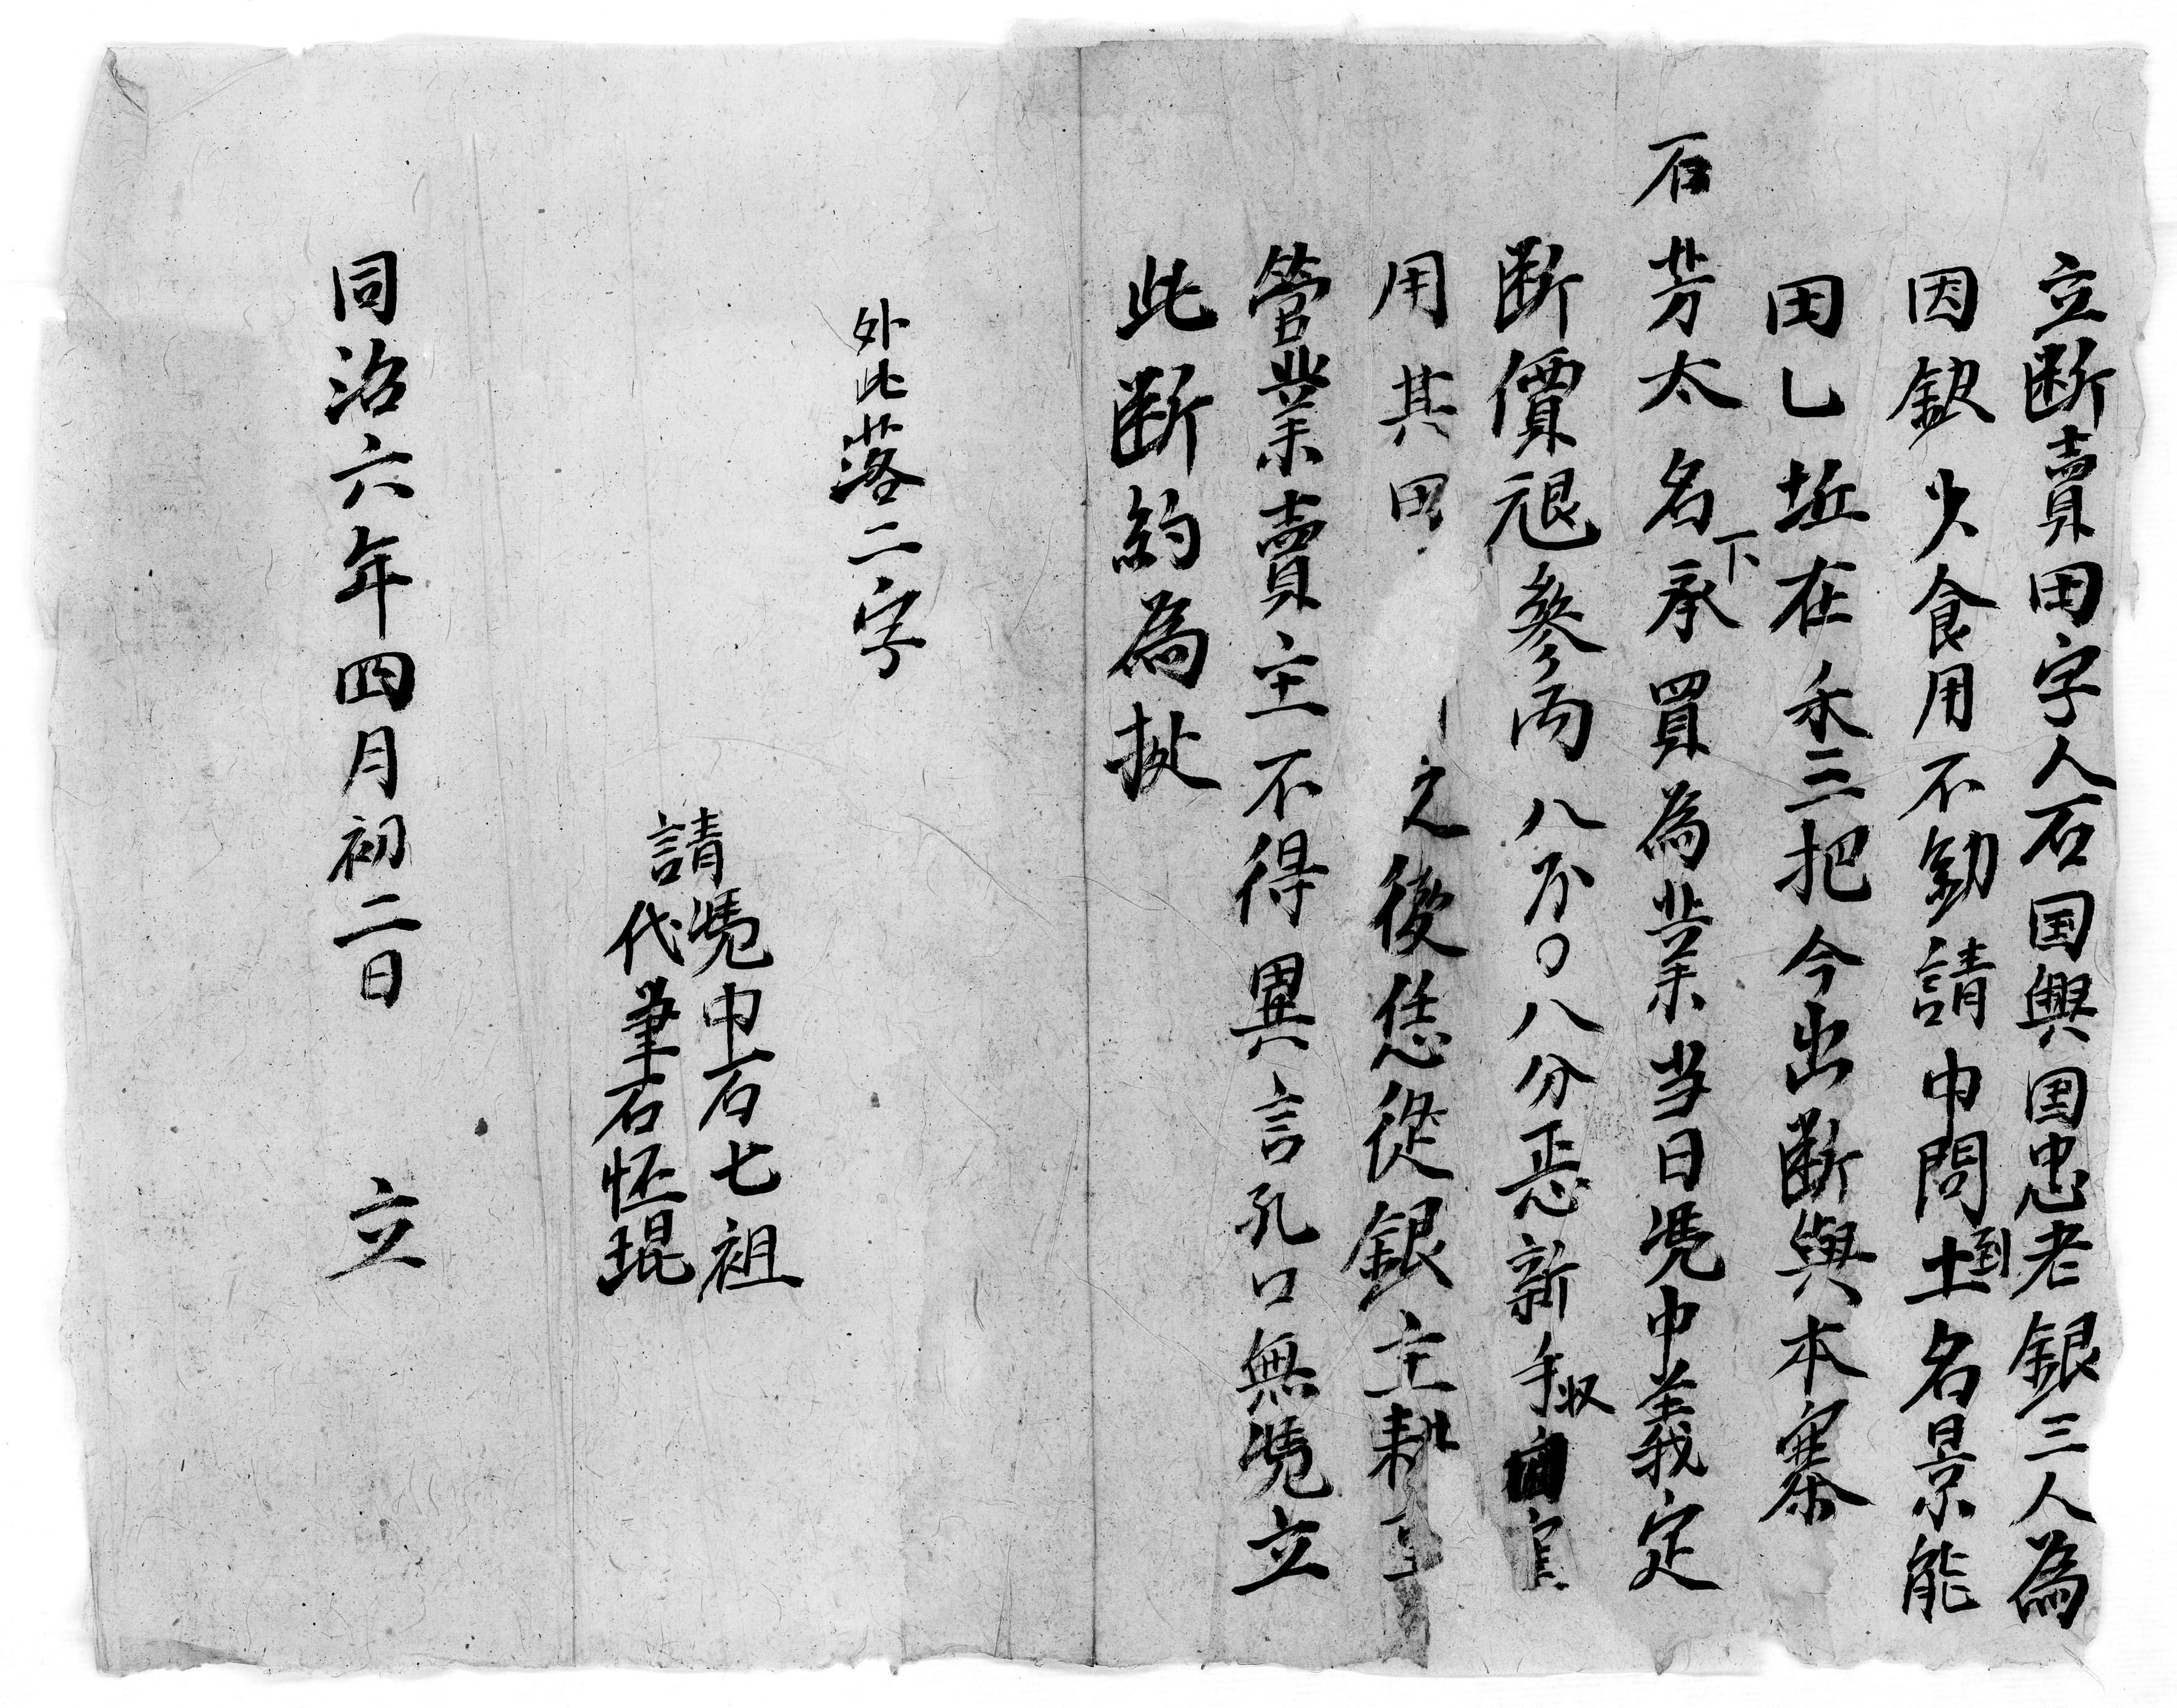 立断賣田字人石国興国忠老銀三人為
因缺少食用不敷請中問到土名景能
田乚坵在禾三把今出断與本寨
石芳太名下承買為業当日凴中義定
断價艮參両八卞〇八分恶新手収
用其田之後恁從銀主耕
管業賣主不得異言孔口無凴立
此断約為拠
外此落二字
請凴中石七祖
代筆石怌琨
同治六年四月初二日 立